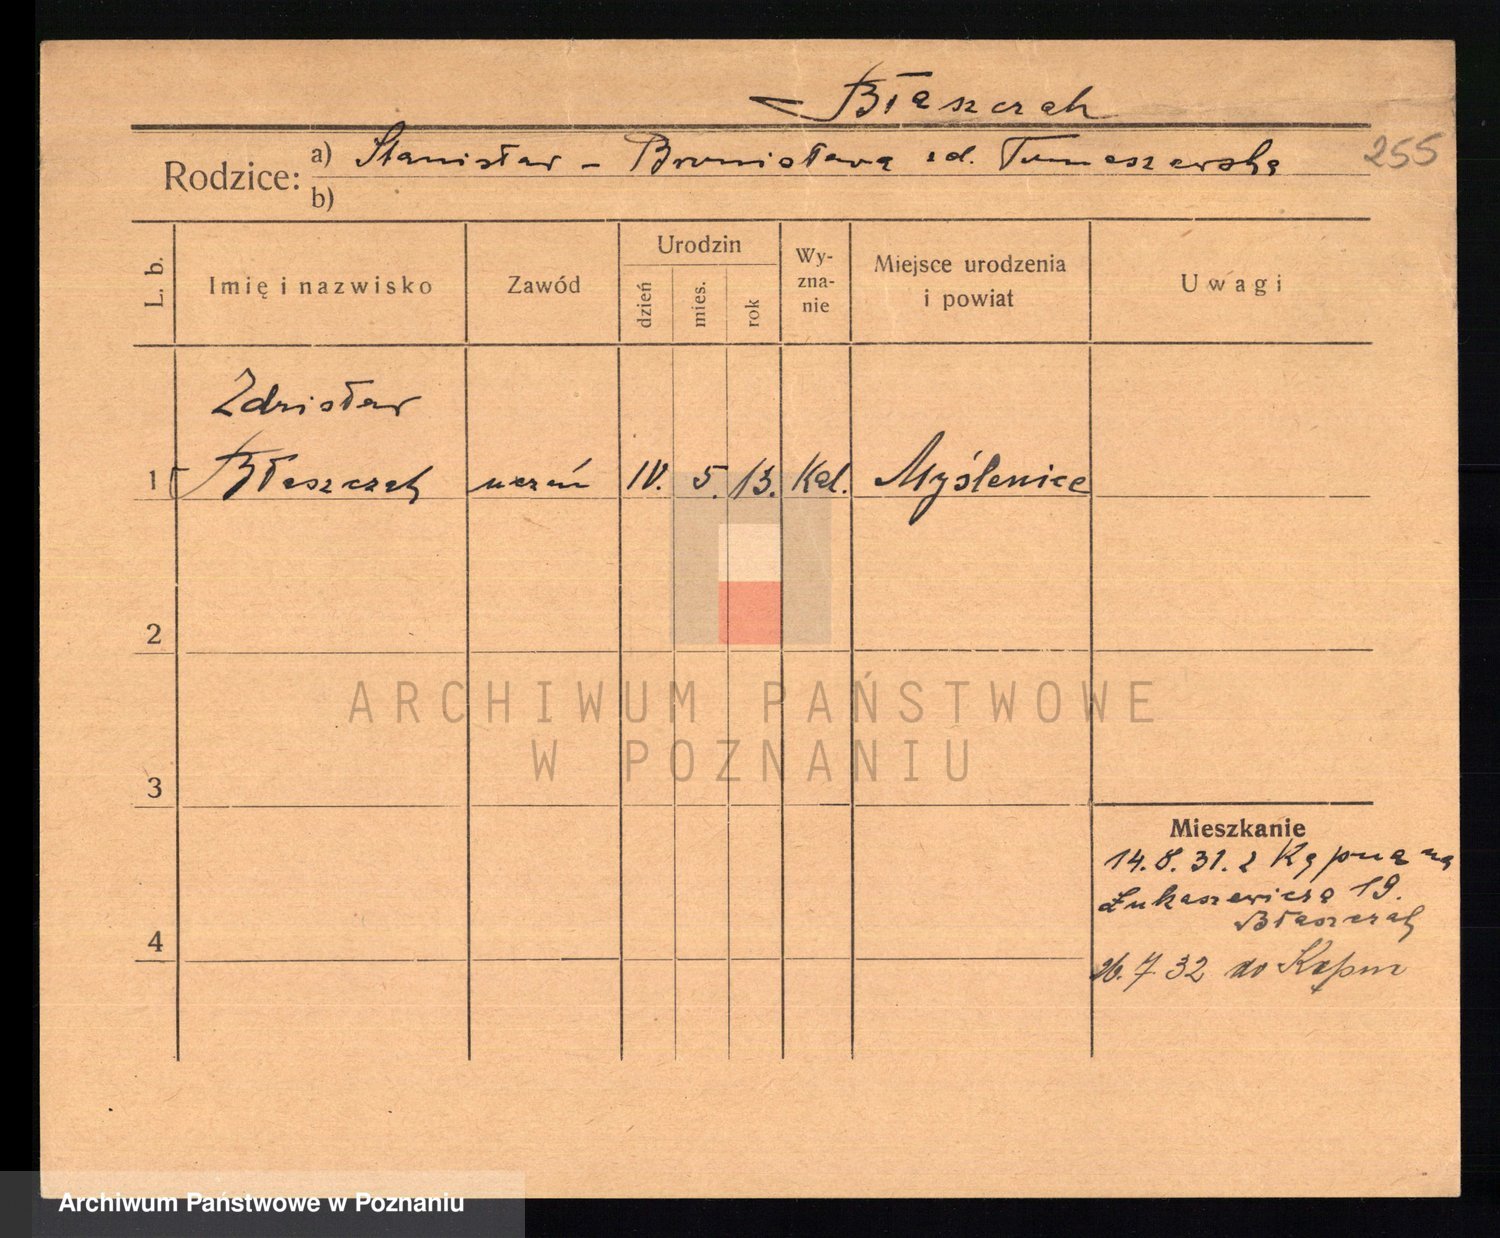 Błaszczak
Rodzice: a) Stanisław – Bronisława zd. Tomaszewska
b)
255
L. b.
Imię i nazwisko
Zawód
Urodzin
dzień
mies.
rok
Wy-
zna-
nie
Miejsce urodzenia
i powiat
Uwagi
Zdzisław
1 Błaszczak uczeń IV. 5. 13. Kat. Myślenice
2
3
4
Mieszkanie
14.8.31. z Kępna na
Łukaszewicza 19.
Błaszczak
26.7.32 do Kępna
ARCHIWUM PAŃSTWOWE
W POZNANIU
Archiwum Państwowe w Poznaniu